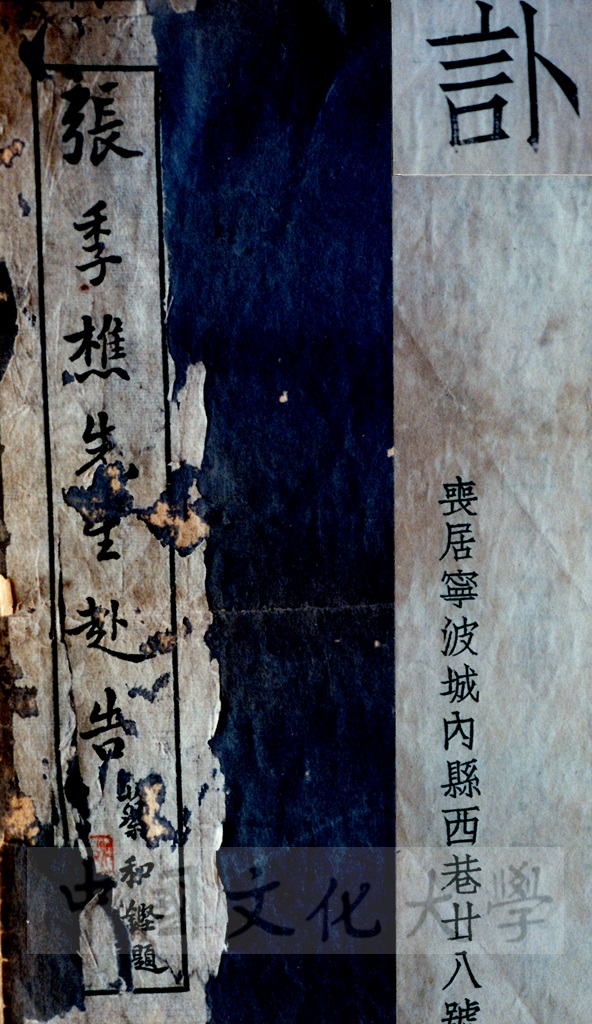 訃
喪居寧波城內縣西巷廿八號
張季樵先生赴告
蔡和鏗題
中國文化大學